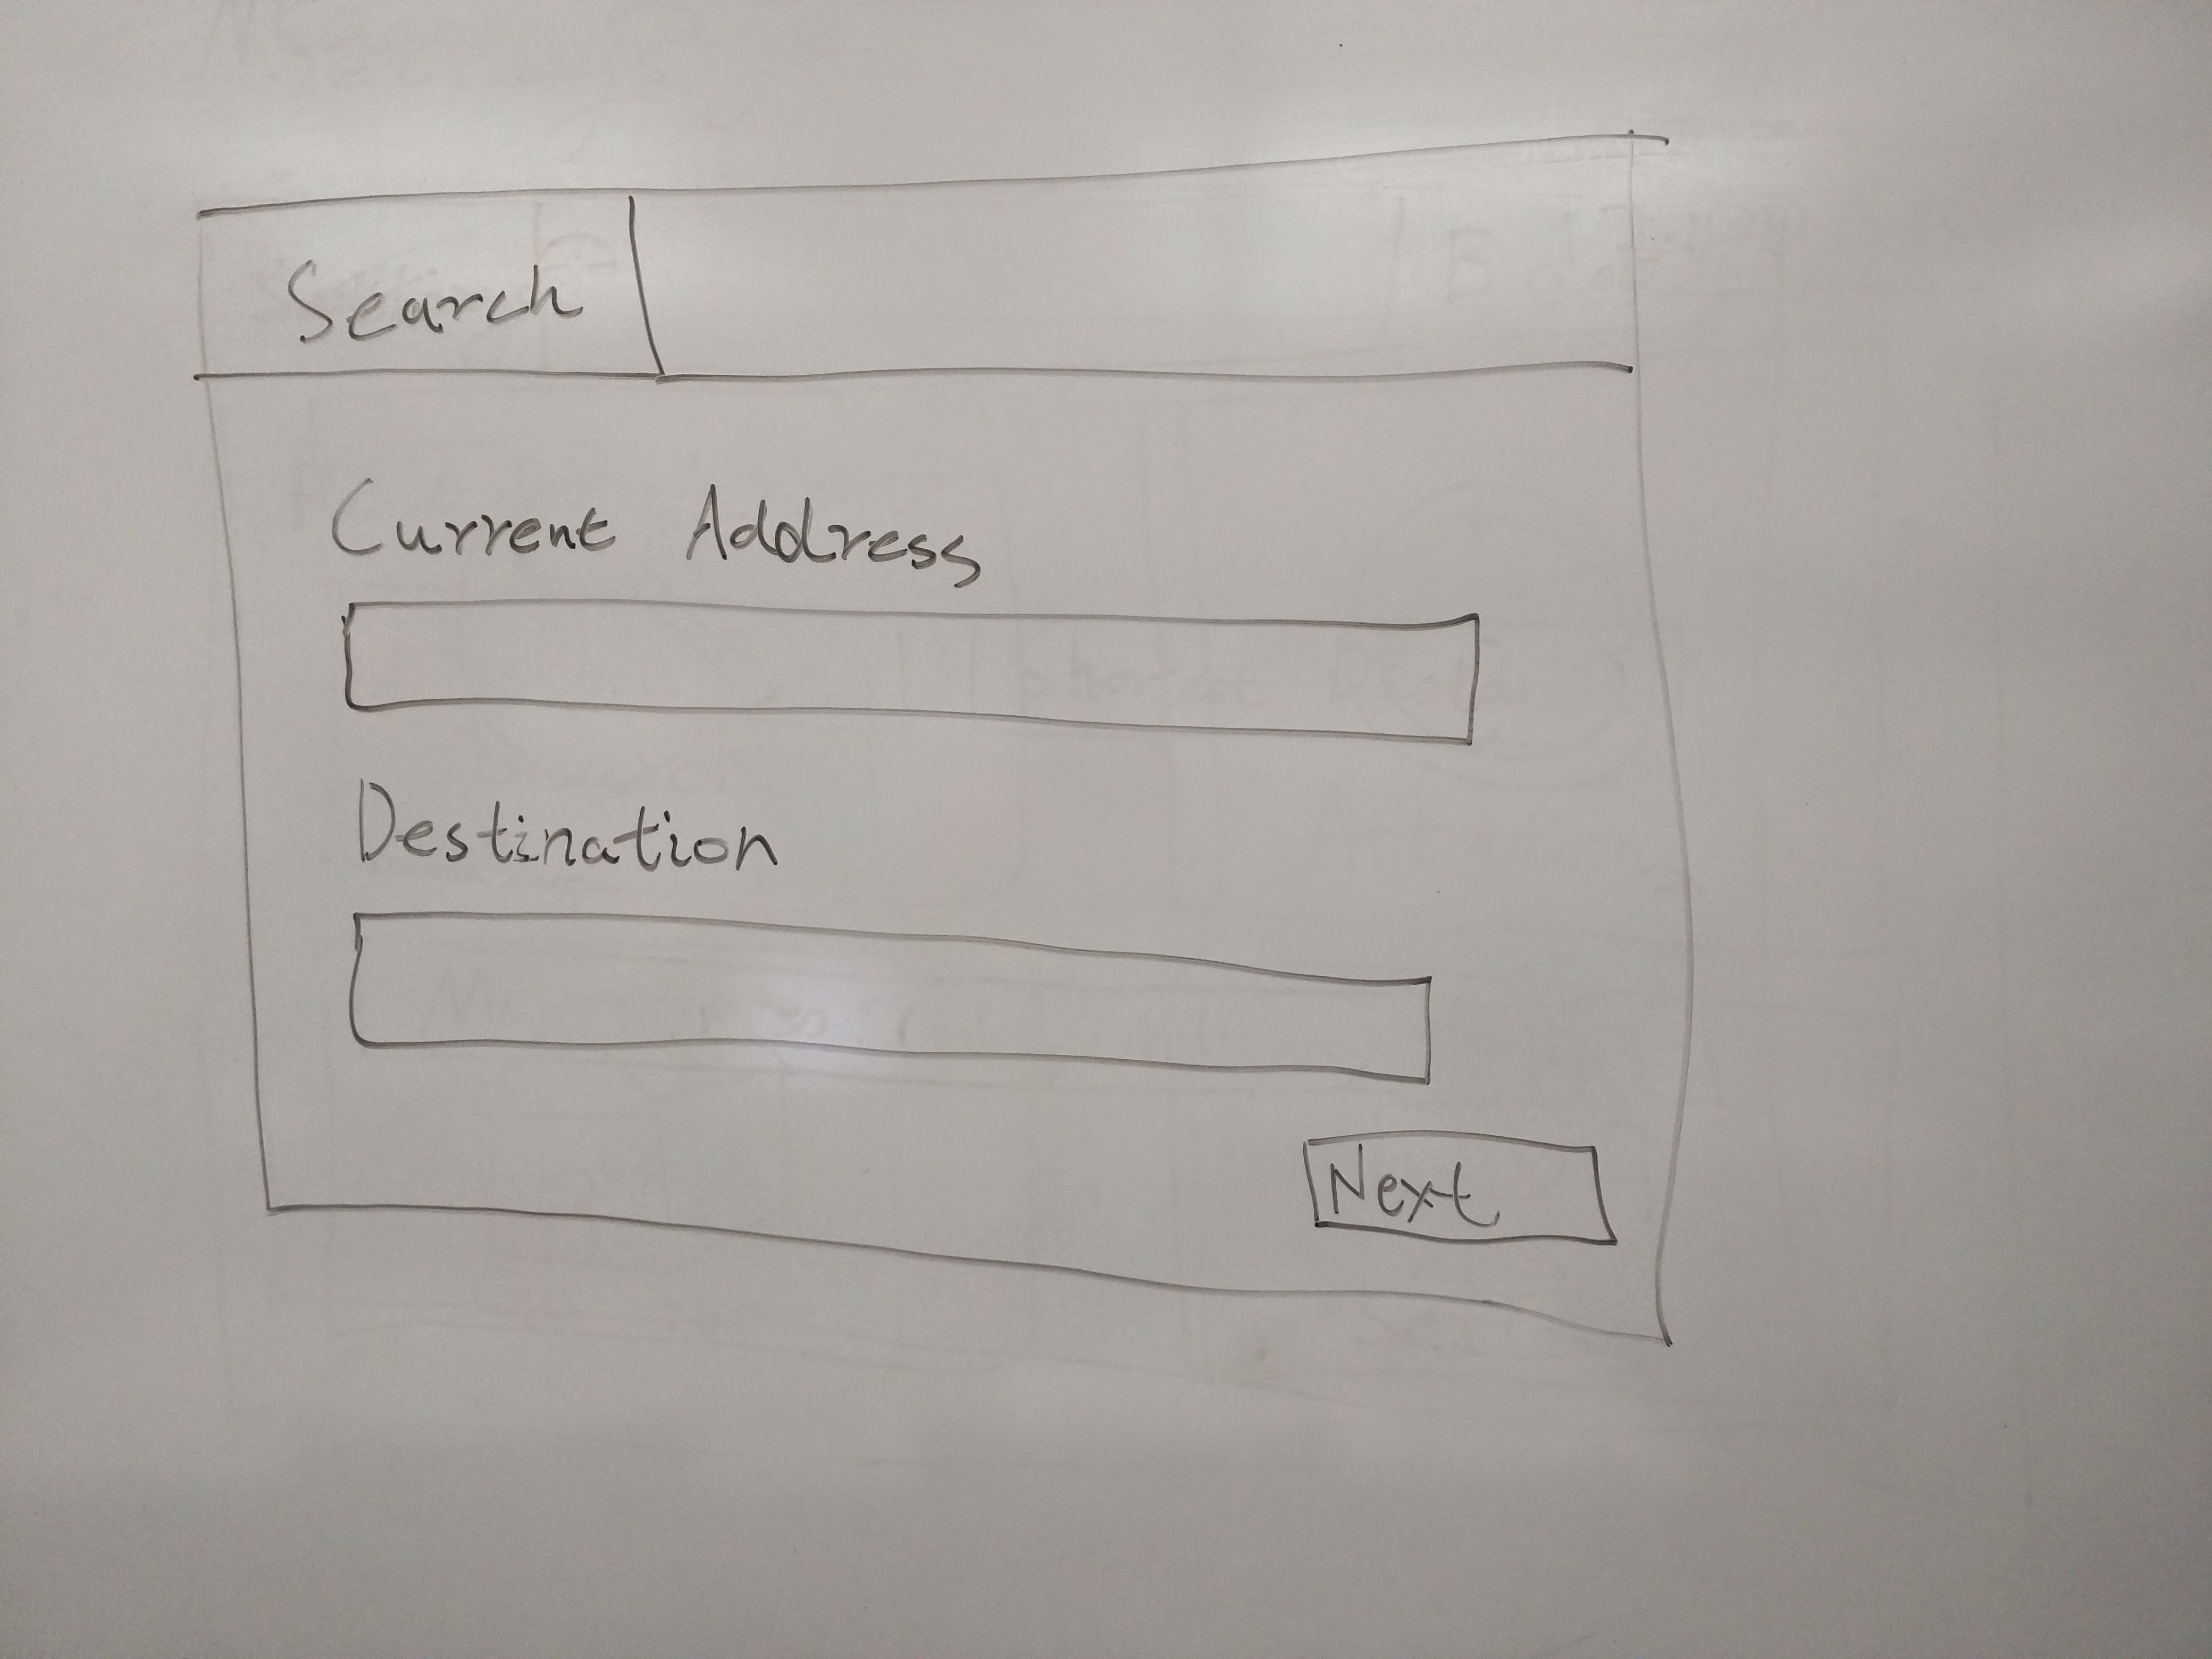 Search
Current Address
Destination
Next